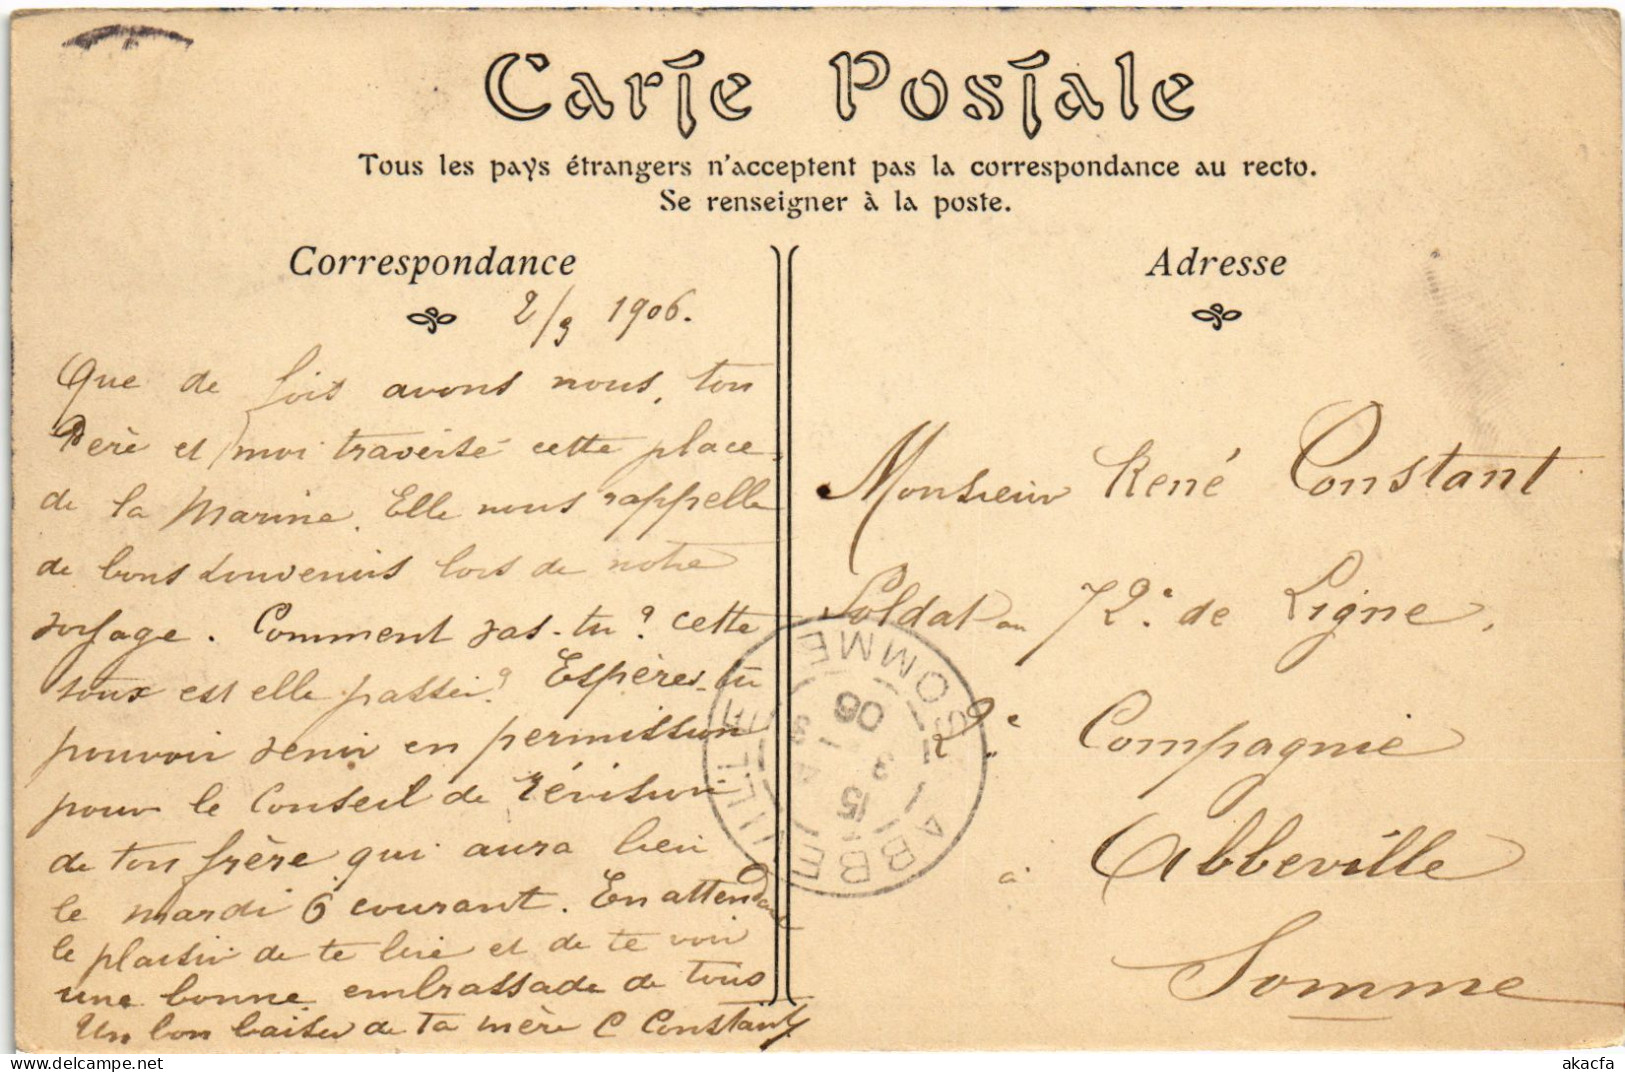 Carte Postale
Tous les pays étrangers n'acceptent pas la correspondance au recto.
Se renseigner à la poste.
Correspondance
2/3 1906.
Que de fois avons nous, ton
Père et moi traversé cette place
de la Marine. Elle nous rappelle
de bons souvenirs lors de notre
voyage. Comment vas-tu? cette
toux est elle passée? Espères-tu
pouvoir venir en permission
pour le Conseil de révision
de ton frère qui aura lieu
le mardi 6 courant. En attendant
le plaisir de te lire et de te voir
une bonne embrassade de tous
Un bon baiser de ta mère C Constant
Adresse
Monsieur René Constant
Soldat au 72e de Ligne,
2e Compagnie
à Abbeville
Somme
ABBEVILLE
SOMME
15
3
06
akacfa